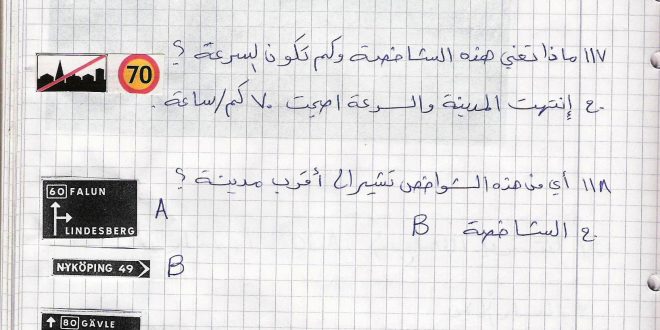 ١١٧ ماذا تعني هذه الشاخصة وكم تكون السرعة ؟
70
ج إنتهت المدينة والسرعة اصبحت ٧٠ كم/ساعة .
١١٨ أي من هذه الشواخص تشير الى أقرب مدينة ؟
60 FALUN
LINDESBERG
A
ج الشاخصة B
NYKÖPING 49
B
80 GÄVLE